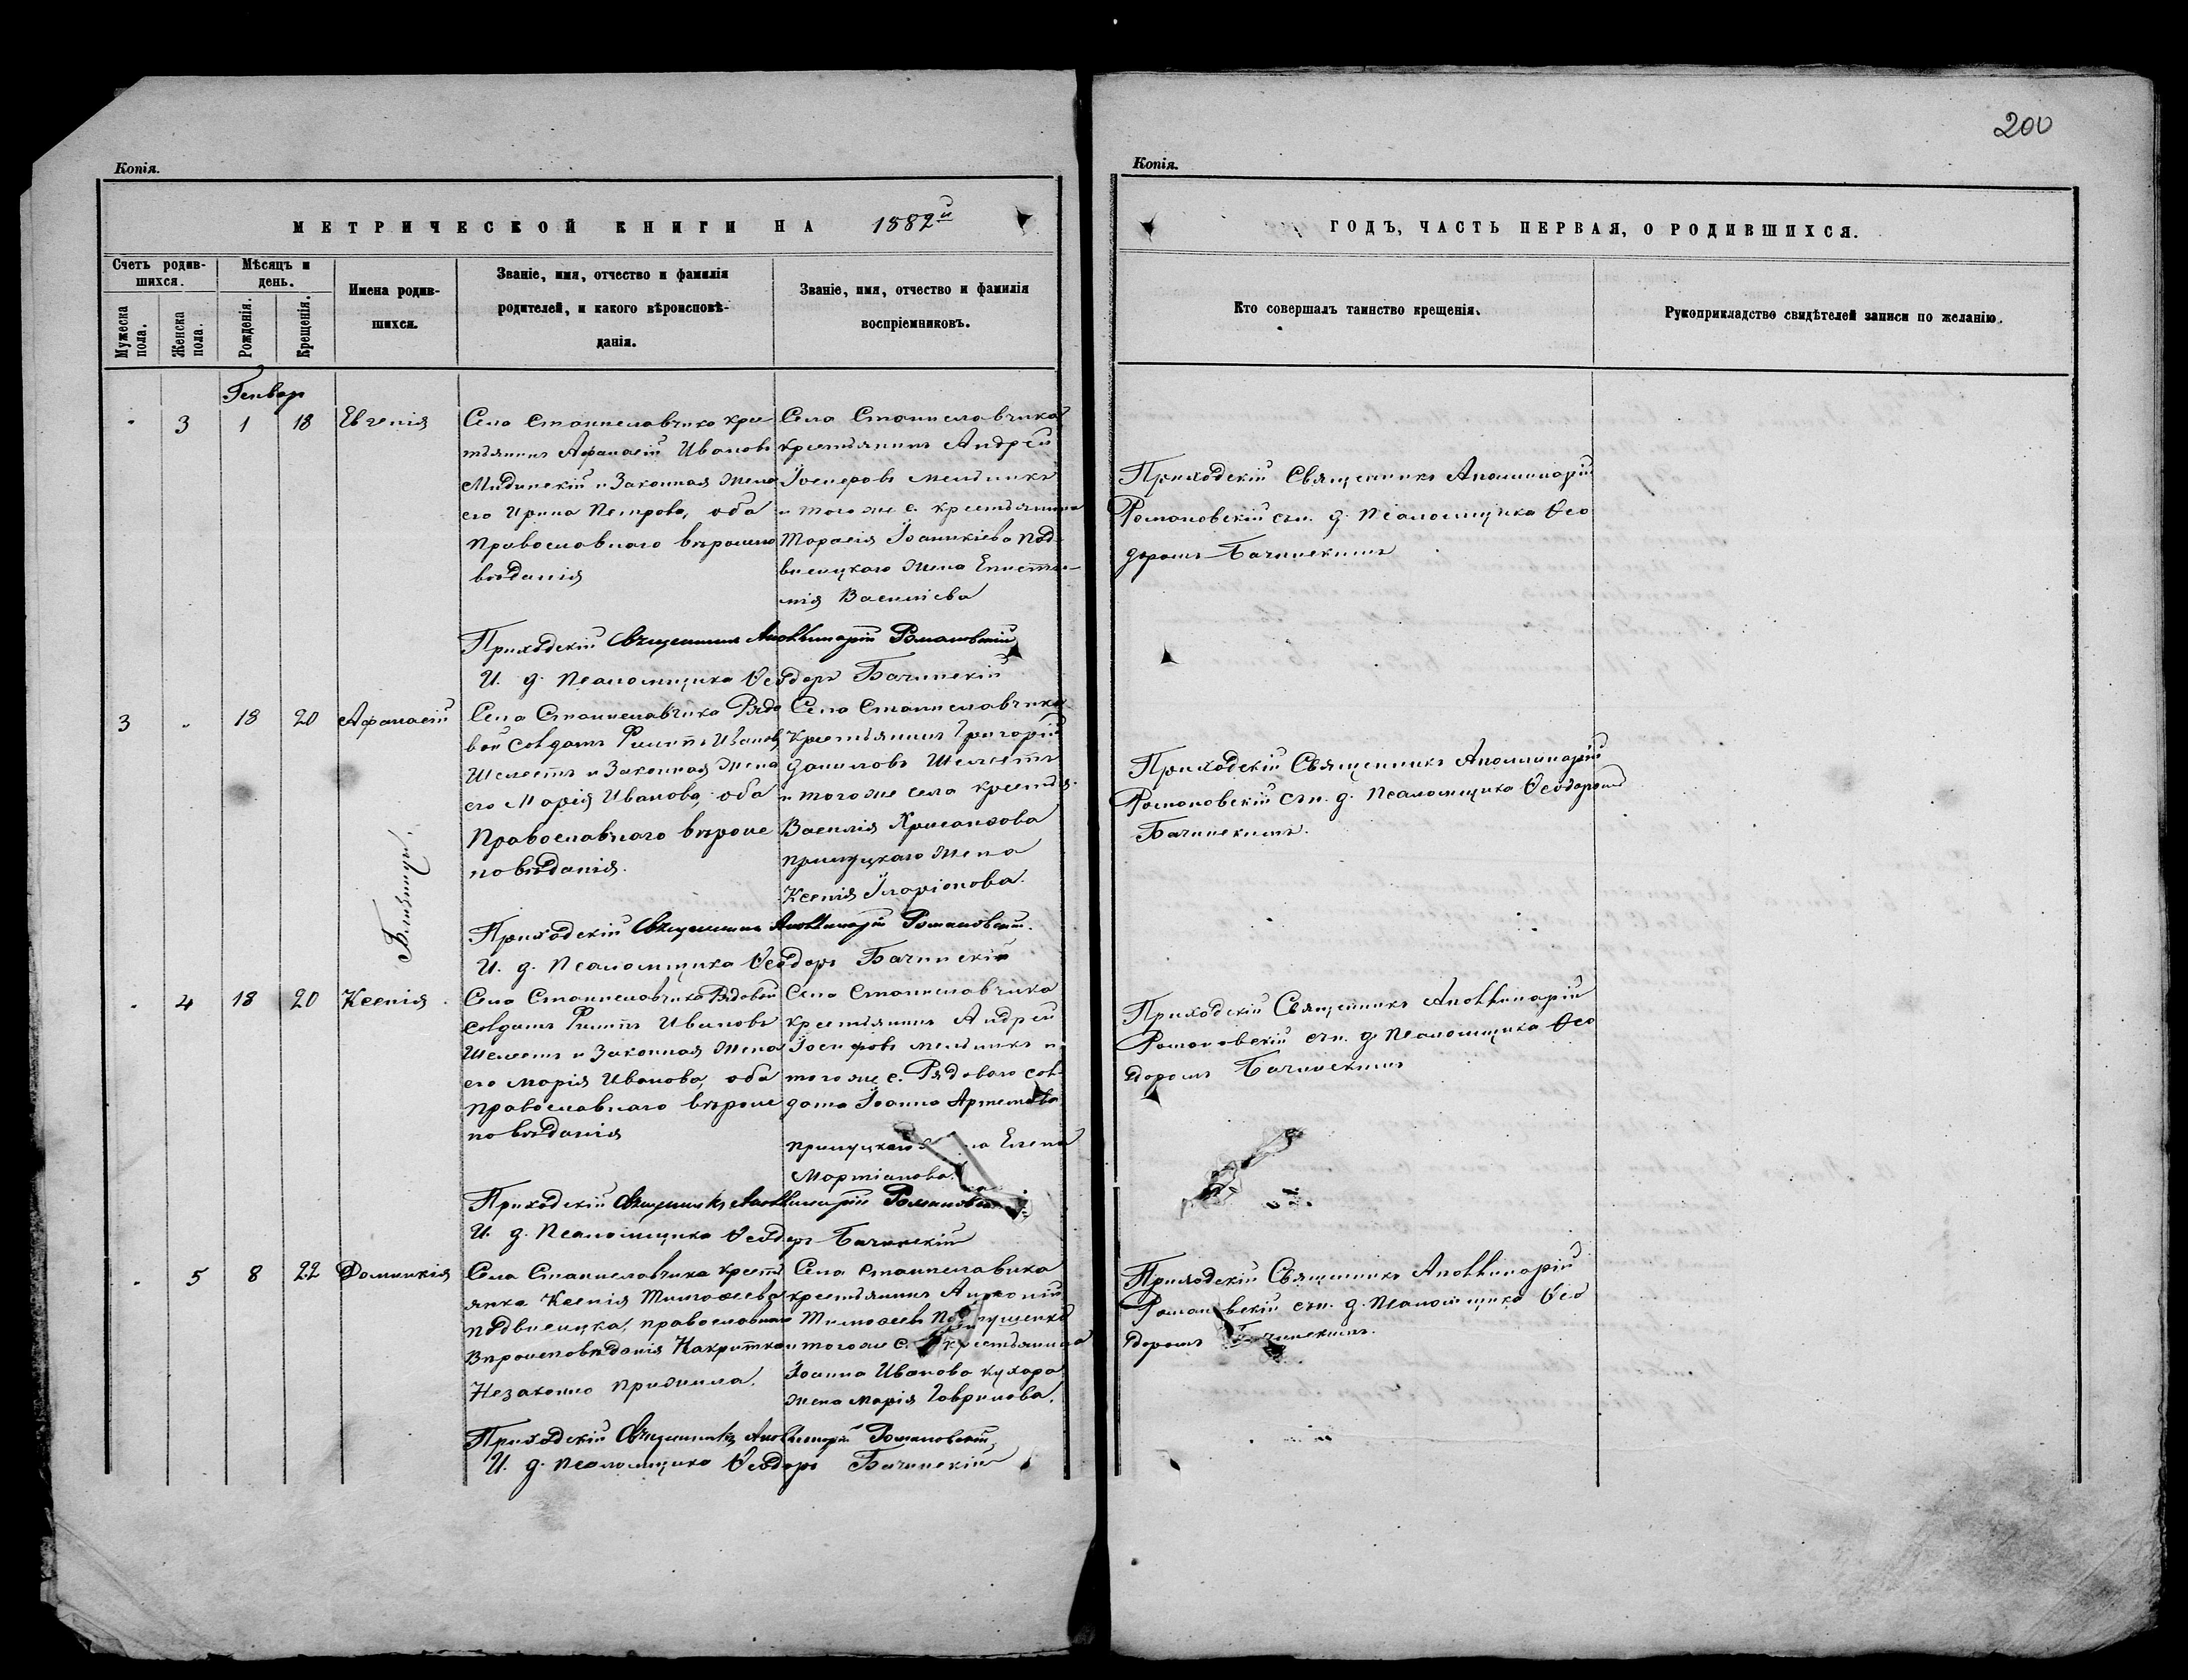 200
Копія.
МЕТРИЧЕСКОЙ КНИГИ НА 1882й
Счетъ родив-
шихся.
Мужеска
пола.
Женска
пола.
Мѣсяцъ и
день.
Рожденія.
Крещенія.
Имена родив-
шихся.
Званіе, имя, отчество и фамилія
родителей, и какого вѣроисповѣ-
данія.
Званіе, имя, отчество и фамилія
воспріемниковъ.
Копія.
ГОДЪ, ЧАСТЬ ПЕРВАЯ, О РОДИВШИХСЯ.
Кто совершалъ таинство крещенія.
Рукоприкладство свидѣтелей записи по желанію.
Генвар
- 3 1 18 Евгенія
Села Станиславчика кре-
стьянинъ Афанасій Ивановъ
и Законная жена
его Ирина Петрова, оба
Православнаго вѣроиспо
вѣданія
Села Станиславчика
крестьянинъ Андрей
Іосифовъ Мельникъ
и того же с. крестьянина
Тарасія Іоаникіева Под-
висоцкаго жена Еписти-
мія Василіева
Приходскій Священникъ Аполлинарій
Романовскій съ и. д. Псаломщика Ѳео
доромъ Бачинскимъ
Приходскій Священникъ Аполлинарій Романовскій
И. д. Псаломщика Ѳеодоръ Бачинскій
3 - 18 20 Афанасій
Села Станиславчика Рядо
вой Солдатъ Филиппъ Ивановъ
Шелестъ и Законная жена
его Марія Иванова, оба
Православнаго вѣроис
повѣданія.
Села Станиславчика
Крестьянинъ Григорій
Даниловъ Шелестъ
и того же села крестья-
Василія Хрисанѳова
Прилуцкаго жена
Ксенія Іларіонова.
Приходскій Священникъ Аполлинарій
Романовскій съ и. д. Псаломщика Ѳеодоромъ
Бачинскимъ.
Близнецы.
Приходскій Священникъ Аполлинарій Романовскій.
И. д. Псаломщика Ѳеодоръ Бачинскій
- 4 18 20 Ксенія
Села Станиславчика Рядовой
Солдатъ Филиппъ Ивановъ
Шелестъ и Законная жена
его Марія Иванова, оба
Православнаго вѣроис
повѣданія
Села Станиславчика
крестьянинъ Андрей
Іосифовъ Мельникъ и
того же с. Рядового сол-
дата Іоанна Артемова
Прилуцкаго Елена
Мартіанова.
Приходскій Священникъ Аполлинарій
Романовскій съ и. д. Псаломщика Ѳео
доромъ Бачинскимъ
Приходскій Священникъ Аполлинарій Романовскій
И. д. Псаломщика Ѳеодоръ Бачинскій
- 5 8 22 Домникія
Села Станиславчика крестъ
янка Ксенія Тимоѳеева
Подвисоцка, православнаго
Вѣроисповѣданія Накритка
Незаконно прижила.
Села Станиславика
крестьянинъ Антоній
Тимоѳеевъ
и того же с. крестьянина
Іоанна Иванова Кухара
жена Марія Гаврилова.
Приходскій Священникъ Аполлинарій
Романовскій съ и. д. Псаломщика Ѳео
доромъ Бачинскимъ.
Приходскій Священникъ Аполлинарій Романовскій,
И. д. Псаломщика Ѳеодоръ Бачинскій